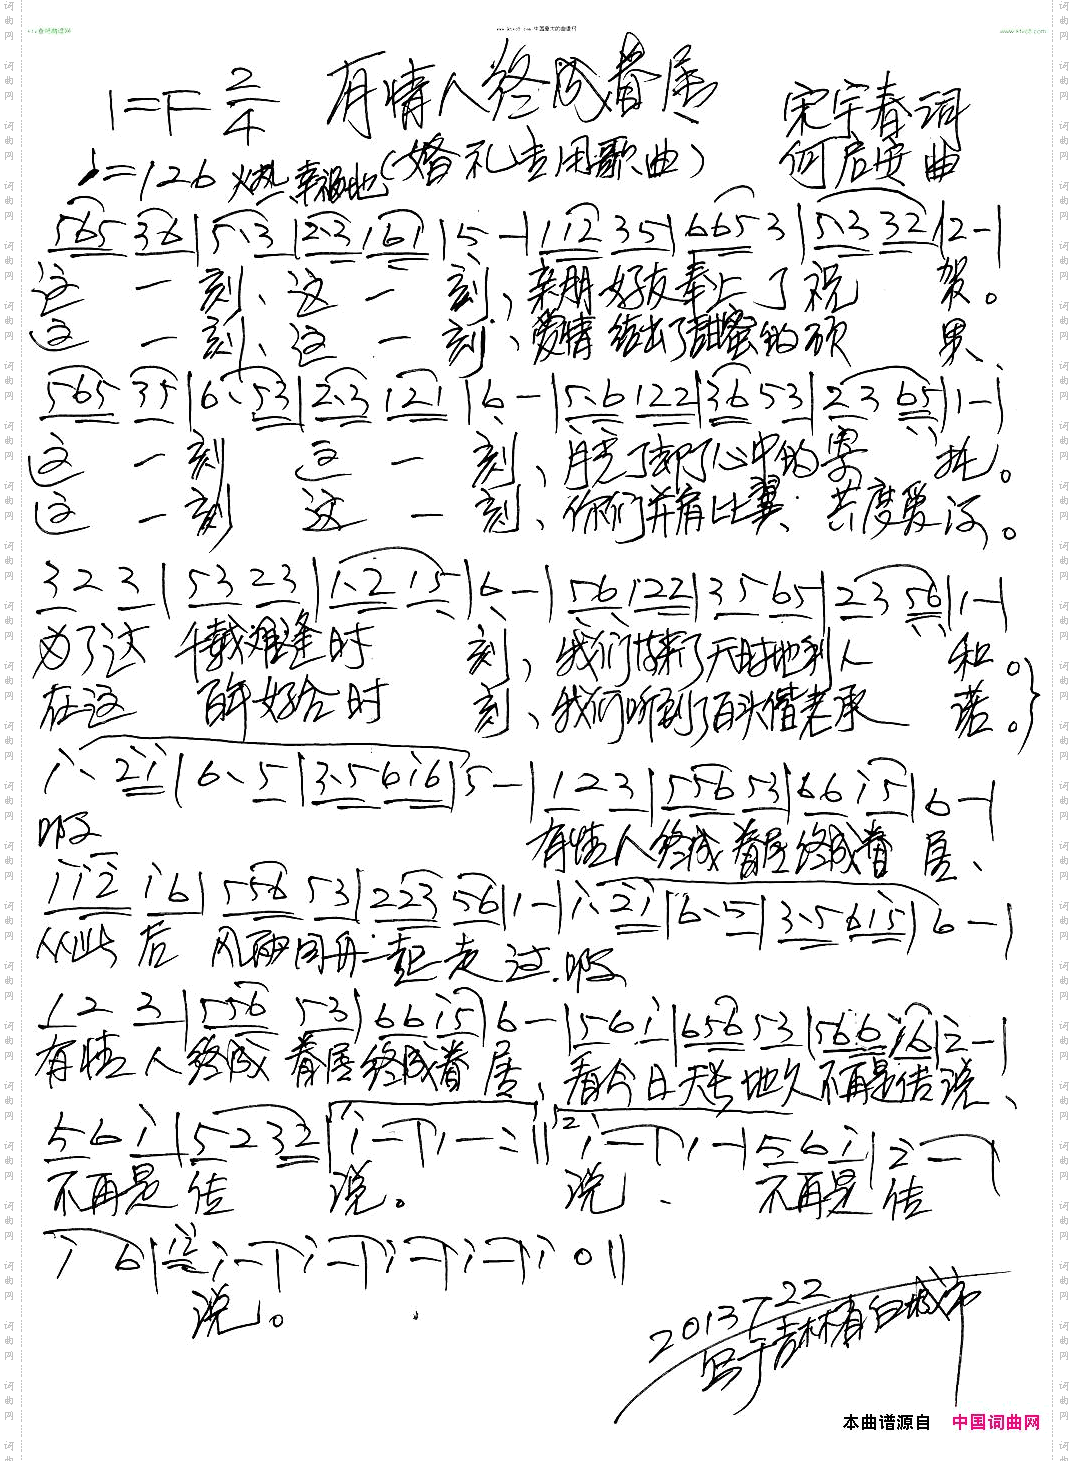 www.ktvc8.com 中国最大的曲谱网
www.ktvc8.com
1=F 2/4 有情人终成眷属 宋宇春词
(婚礼专用歌曲) 何启荣曲
♩=126 热烈幸福地
565 36|5.3|2.3 161|5 -|112 35|665 3|5.3 32|2 -|
这一刻、这一刻,亲朋好友奉上了祝贺。
这一刻、这一刻、爱情结出了甜蜜的硕果、
565 35|6. 53|2.3 121|6 -|5.6 122|36 53|23 65|1 -|
这一刻 这一刻、月老了却了心中的寄托。
这一刻 这一刻、你们并肩比翼、共度爱河。
3 2 3|53 23|1.2 15|6 -|56 122|35 65|23 56|1 -|
为了这千载难逢时刻,我们带来了天时地利人和。
在这百年好合时刻、我们听到了百头偕老承诺。
1. 21|6. 5|3.5 616|5 -|1 2 3|556 53|66 15|6 -|
啊 有情人终成眷属终成眷属、
112 16|556 53|223 56|1 -|1. 21|6. 5|3.5 615|6 -|
从此后 风雨同舟一起走过.啊
1 2 3|556 53|66 15|6 -|5 6 1|656 53|566 16|2 -|
有情人终成眷属终成眷属、看今日天长地久不再是传说、
5 6 1|5 2 32|1 -|1 -:‖1 -|1 -|5 6 1|2 -|
不再是传说。 说. 不再是传
1 6|12 1 -|1 -|1 -|1 -|1 0‖
说。
2013 7 22
写于吉林省白城市
本曲谱源自 中国词曲网